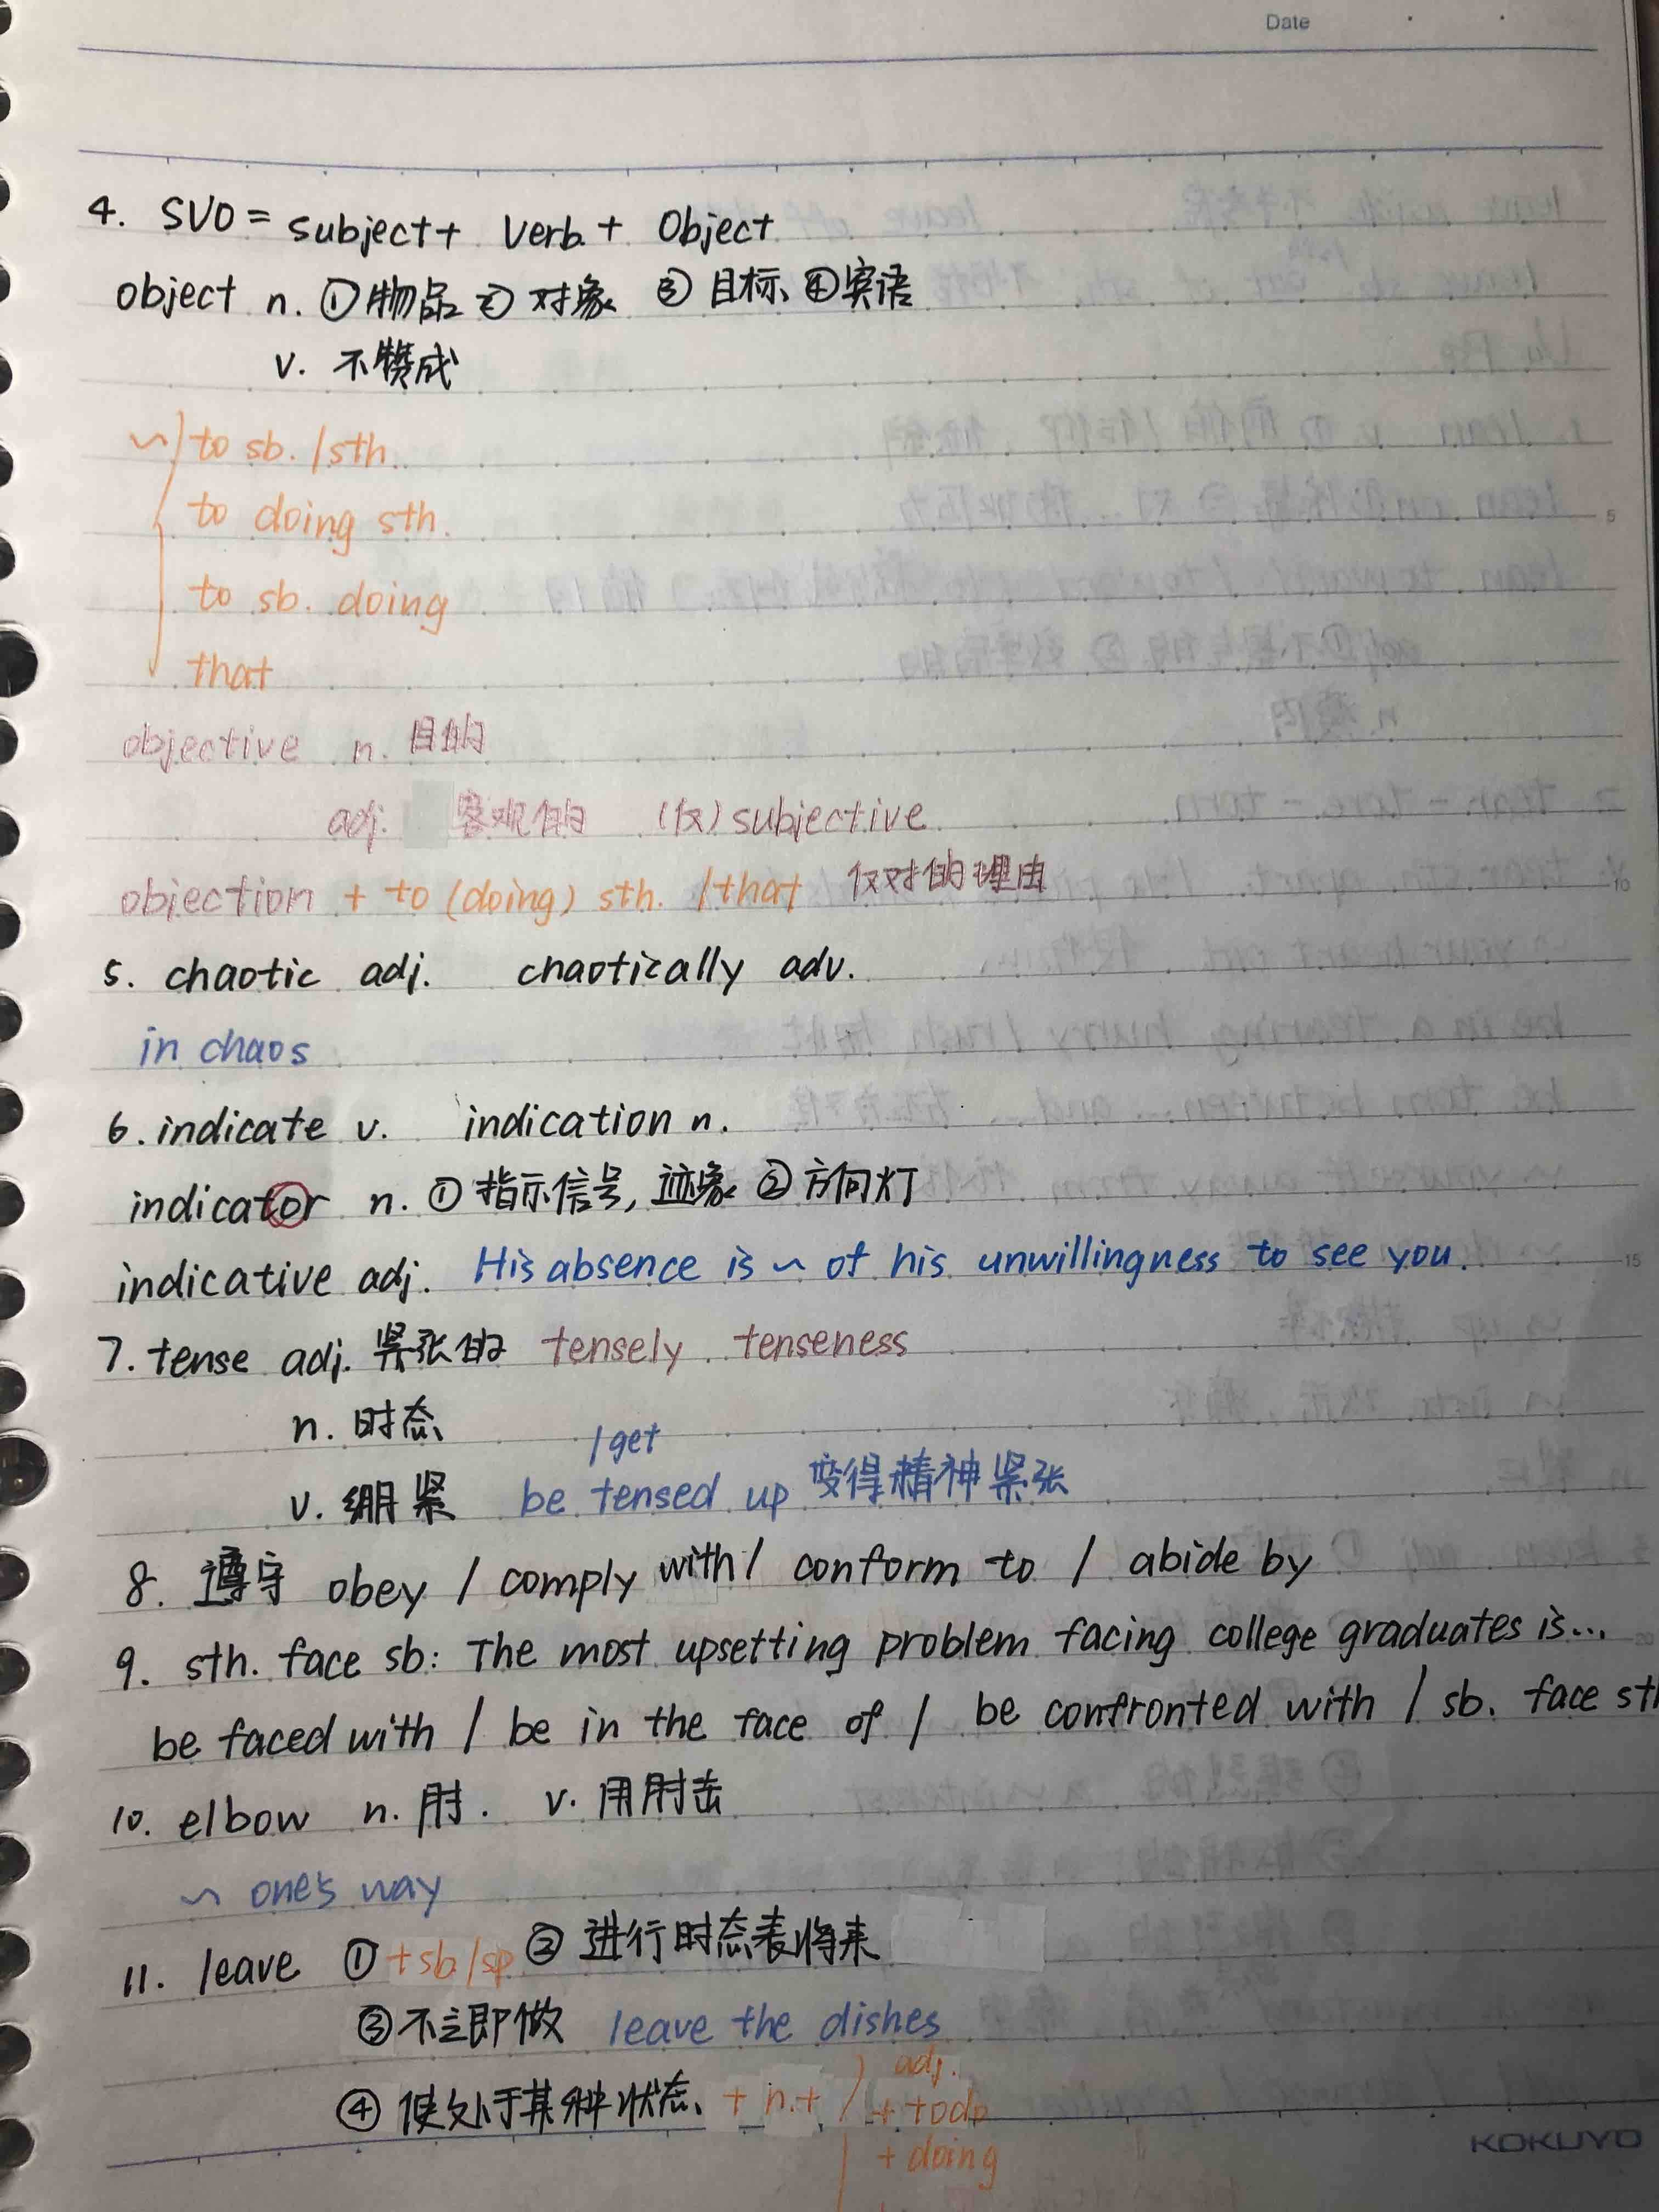 Date
4. SVO = subject + Verb. + Object
object n. ①物品 ② 对象 ③ 目标 ④宾语
v. 不赞成
~ to sb. /sth.
to doing sth.
to sb. doing
that
objective n. 目的
adj. 客观的 (反) subjective
objection + to (doing) sth. /that 反对的理由
5. chaotic adj. chaotically adv.
in chaos
6. indicate v. indication n.
indicator n. ① 指示信号, 迹象 ② 方向灯
indicative adj. His absence is ~ of his unwillingness to see you.
7. tense adj. 紧张的 tensely tenseness
n. 时态
/get
v. 绷紧 be tensed up 变得精神紧张
8. 遵守 obey / comply with / conform to / abide by
9. sth. face sb: The most upsetting problem facing college graduates is...
be faced with / be in the face of / be confronted with / sb. face sth
10. elbow n. 肘. v. 用肘击
~ one's way
11. leave ① +sb/sp ② 进行时态表将来
③不立即做 leave the dishes
adj.
④ 使处于某种状态 + n. + + to do
+ doing
KOKUYO